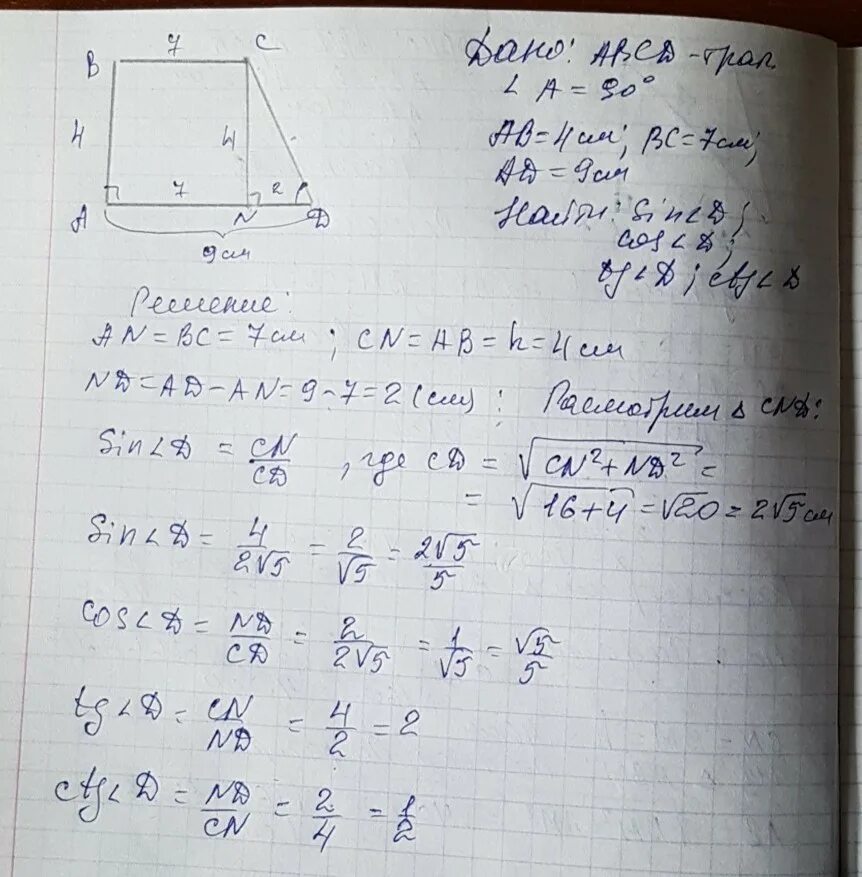 7
B C
4 4
7 2
A N D
9 см
Дано: ABCD - трап.
∠ A = 90°
AB = 4 см; BC = 7 см;
AD = 9 см
Найти: Sin∠D;
cos∠D;
tg∠D; ctg∠D
Решение:
AN = BC = 7 см; CN = AB = h = 4 см
ND = AD - AN = 9 - 7 = 2 (см); Расмотрим ∆ CND:
Sin∠D = CN/CD, где CD = √(CN² + ND²) =
= √(16+4) = √20 = 2√5 см
Sin∠D = 4/2√5 = 2/√5 = 2√5/5
cos∠D = ND/CD = 2/2√5 = 1/√5 = √5/5
tg∠D = CN/ND = 4/2 = 2
ctg∠D = ND/CN = 2/4 = 1/2